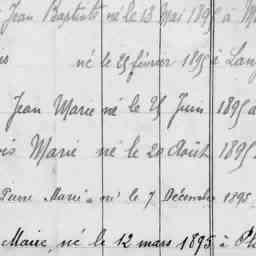 Jean Baptiste né le 13 Mai 1895 à M
né le 25 février 1895 à Lan
Jean Marie né le 25 Juin 1895 à
is Marie né le 20 Août 1895
Pierre Marie né le 7 Décembre 1895
Marie, né le 12 mars 1895 à Pl